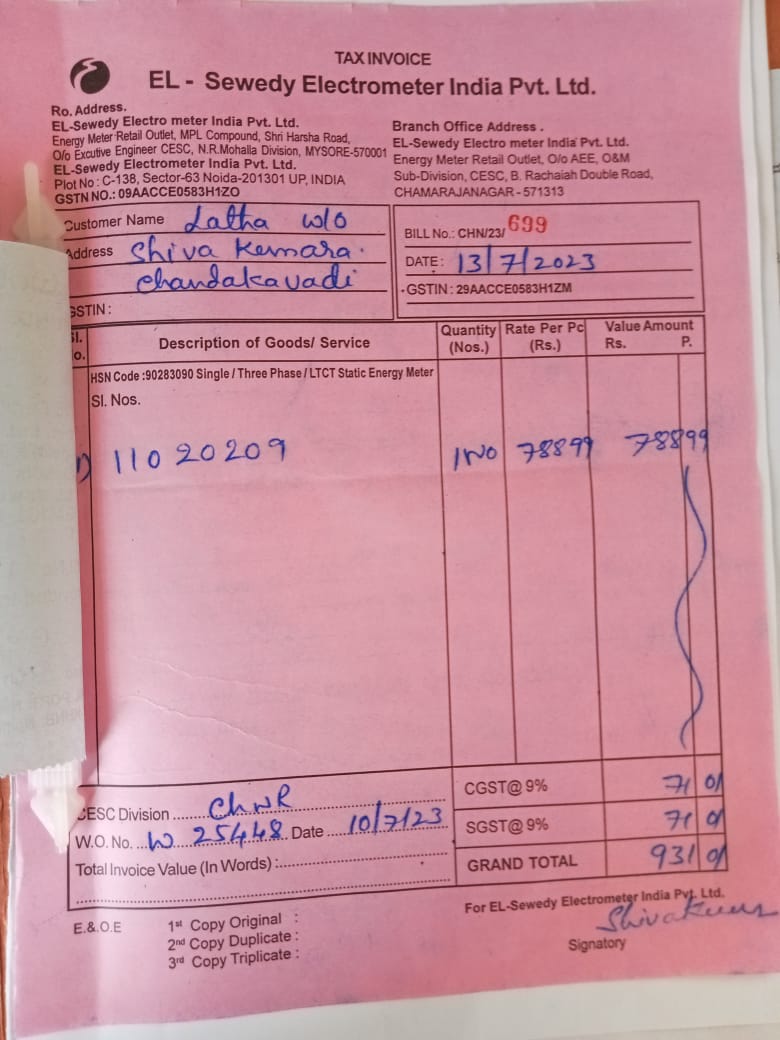 TAX INVOICE
EL - Sewedy Electrometer India Pvt. Ltd.
Ro. Address.
EL-Sewedy Electro meter India Pvt. Ltd.
Energy Meter Retail Outlet, MPL Compound, Shri Harsha Road,
O/o Excutive Engineer CESC, N.R.Mohalla Division, MYSORE-570001
EL-Sewedy Electrometer India Pvt. Ltd.
Plot No : C-138, Sector-63 Noida-201301 UP, INDIA
GSTN NO.: 09AACCE0583H1ZO
Branch Office Address .
EL-Sewedy Electro meter India Pvt. Ltd.
Energy Meter Retail Outlet, O/o AEE, O&M
Sub-Division, CESC, B. Rachaiah Double Road,
CHAMARAJANAGAR - 571313
Customer Name Latha W/O
Address Shiva Kumara.
Chandakavadi
GSTIN :
BILL No.: CHN/23/ 699
DATE : 13/7/2023
GSTIN : 29AACCE0583H1ZM
Sl. No. Description of Goods/ Service Quantity (Nos.) Rate Per Pc (Rs.) Value Amount Rs. P.
HSN Code :90283090 Single / Three Phase / LTCT Static Energy Meter
Sl. Nos.
1) 11020209 1NO 78899 78899
CGST@ 9% 71 0/
SGST@ 9% 71 0/
GRAND TOTAL 931 0/
CESC Division ChNR
W.O. No. W 25448 Date 10/7/23
Total Invoice Value (In Words) :
E.&.O.E
1st Copy Original :
2nd Copy Duplicate :
3rd Copy Triplicate :
For EL-Sewedy Electrometer India Pvt. Ltd.
Signatory